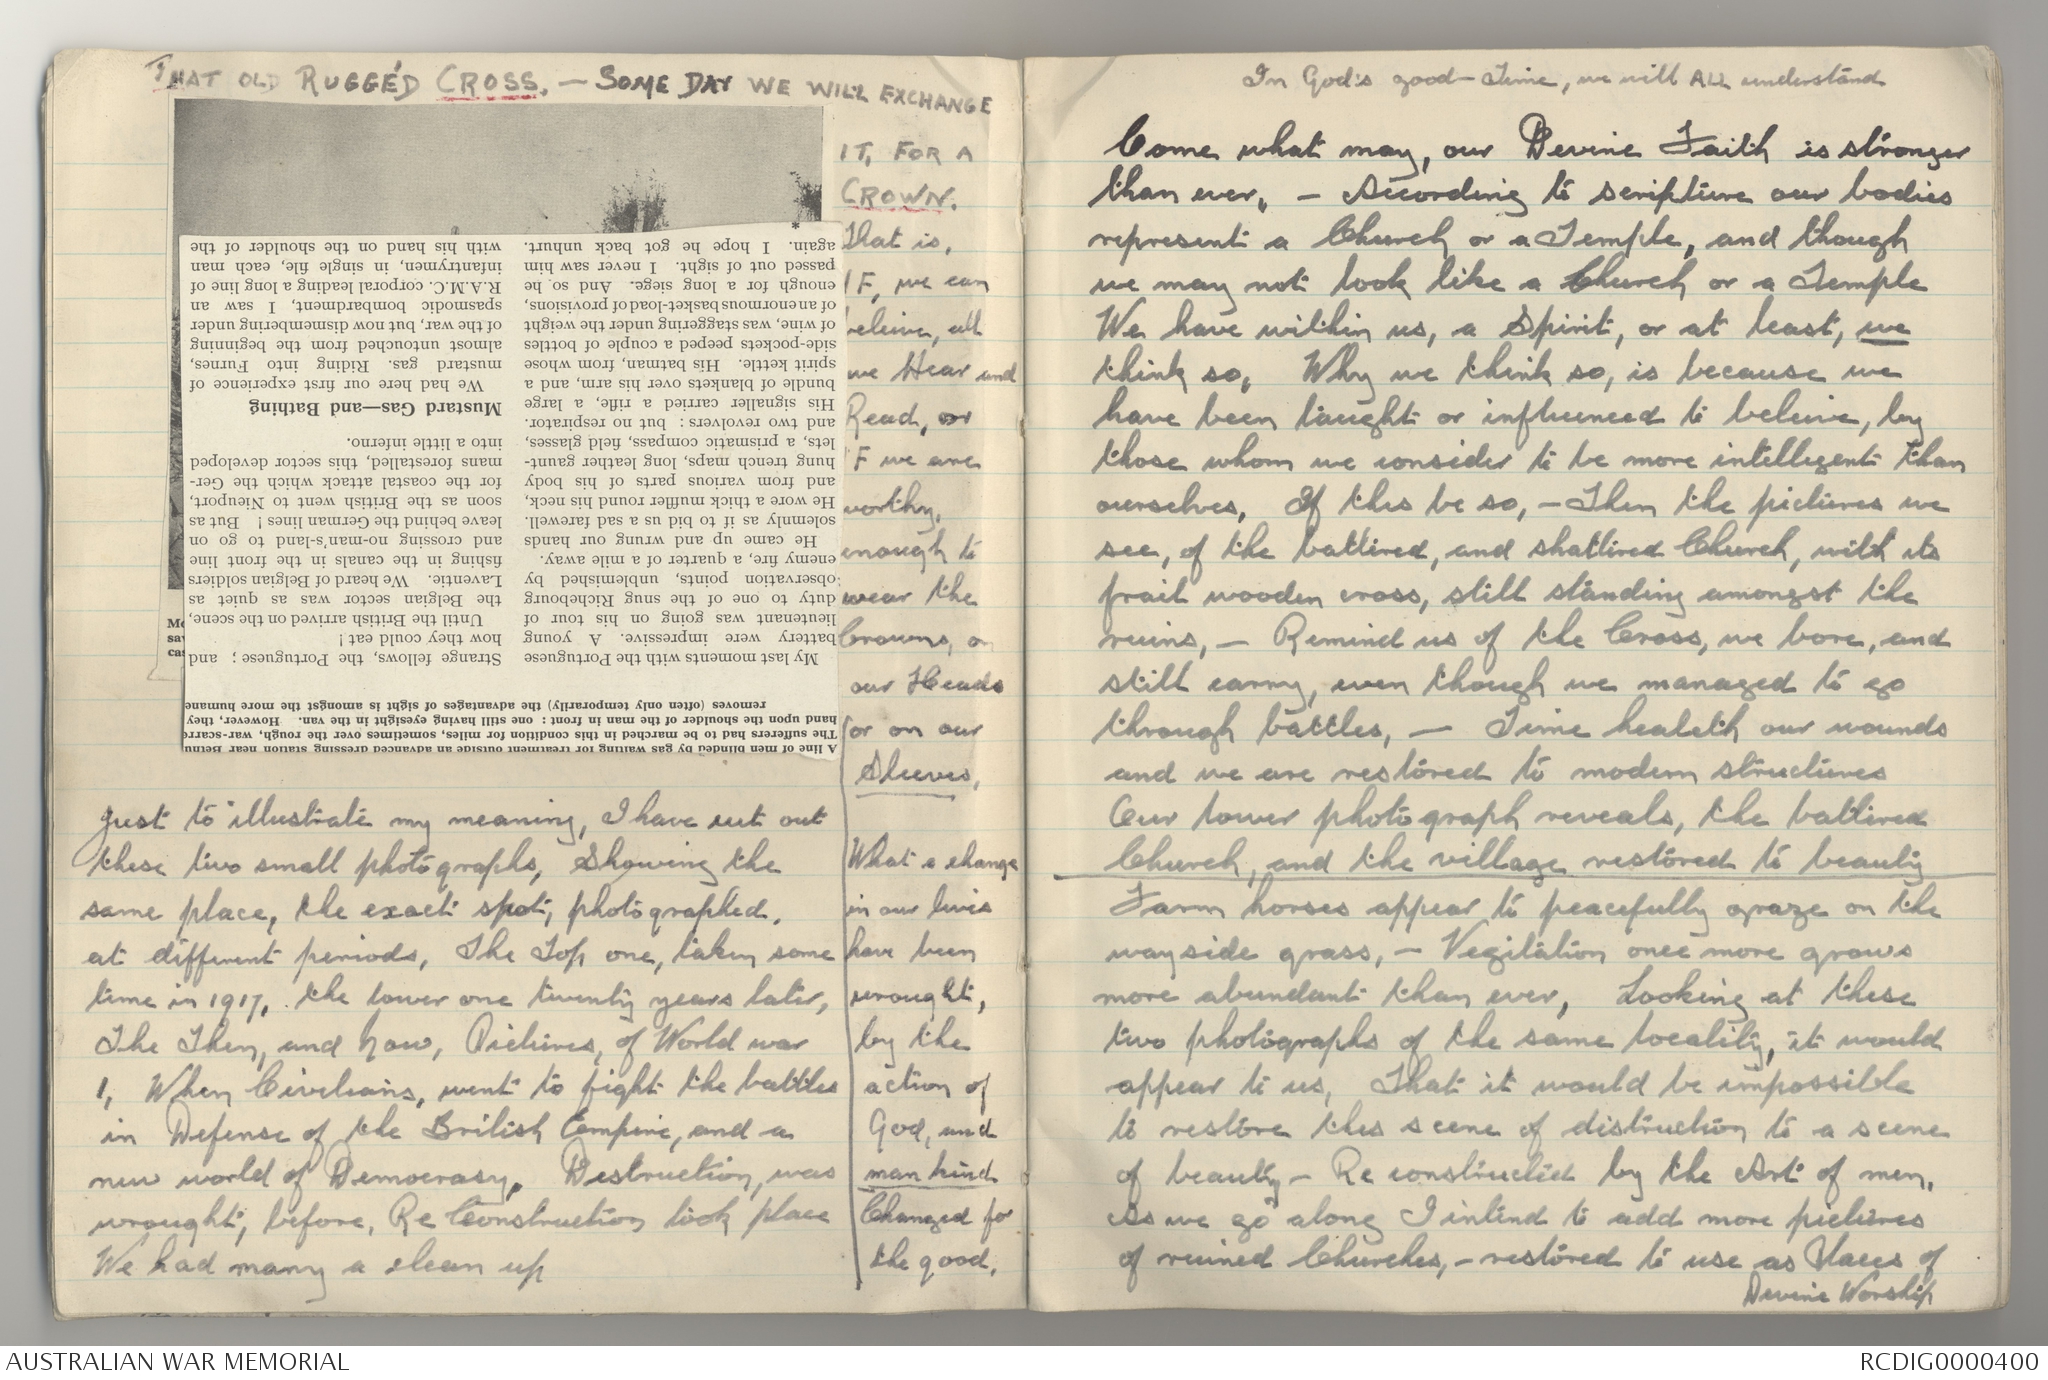 THAT OLD RUGGED CROSS. — SOME DAY WE WILL EXCHANGE
IT, FOR A
CROWN.
That is,
IF, we can
beleive, all
we Hear and
Read, or
IF we are
worthy,
enough to
wear the
Crowns, on
our Heads
or on our
Sleeves,
What a change
in our lives
have been
wrought,
by the
action of
God, and
man kind
Changed for
the good,
A line of men blinded by gas waiting for treatment outside an advanced dressing station near
The sufferers had to be marched in this condition for miles, sometimes over the rough,
hand upon the shoulder of the man in front : one still having eyesight in the van. However, they
removes (often only temporarily) the advantages of sight is amongst the more humane
My last moments with the Portuguese
battery were impressive. A young
lieutenant was going on his tour of
duty to one of the snug Richebourg
observation points, unblemished by
enemy fire, a quarter of a mile away.
He came up and wrung our hands
solemnly as if to bid us a sad farewell.
He wore a thick muffler round his neck,
and from various parts of his body
hung trench maps, long leather gaunt-
lets, a prismatic compass, field glasses,
and two revolvers : but no respirator.
His signaller carried a rifle, a large
bundle of blankets over his arm, and a
spirit kettle. His batman, from whose
side-pockets peeped a couple of bottles
of wine, was staggering under the weight
of an enormous basket-load of provisions,
enough for a long siege. And so he
passed out of sight. I never saw him
again. I hope he got back unhurt.
*
Strange fellows, the Portuguese ; and
how they could eat !
Until the British arrived on the scene,
the Belgian sector was as quiet as
Laventie. We heard of Belgian soldiers
fishing in the canals in the front line
and crossing no-man's-land to go on
leave behind the German lines ! But as
soon as the British went to Nieuport,
for the coastal attack which the Ger-
mans forestalled, this sector developed
into a little inferno.
Mustard Gas—and Bathing
We had here our first experience of
mustard gas. Riding into Furnes,
almost untouched from the beginning
of the war, but now dismembering under
spasmodic bombardment, I saw an
R.A.M.C. corporal leading a long line of
infantrymen, in single file, each man
with his hand on the shoulder of the
Just to illustrate my meaning, I have cut out
these two small photographs, Showing the
same place, the exact spot, photographed.
at different periods, The Top one, taken some
time in 1917, the lower one twenty years later,
The Then, and Now, Pictures, of World war
1, When Civelians, went to fight the battles
in Defense of the British Empire, and a
new world of Democrasy. Destruction, was
wrought, before, Re Construction took place
We had many a clean up
In God's good-Time, we will ALL understand
Come what may, our Devine Faith is stronger
than ever, — According to scripture our bodies
represent a Church or a Temple, and though
we may not look like a Church or a Temple
We have within us, a Spirit, or at least, we
think so, Why we think so, is because we
have been taught or influenced to beleive, by
those whom we consider to be more intellegent than
ourselves, If this be so, — Then the pictures we
see, of the battired, and shattired Church, with its
frail wooden cross, still standing amongst the
ruins, — Remind us of the Cross, we bore, and
still carry, even though we managed to go
through battles, — Time healeth our wounds
and we are restored to modern structures
Our lower photograph reveals, the battired
Church, and the village restored to beauty
Farm horses appear to peacefully graze on the
wayside grass, — Vegitation once more grows
more abundant than ever, Looking at these
two photographs of the same locality, it would
appear to us, That it would be impossible
to restore this scene of distruction to a scene
of beauty — Re constructed by the Art of men,
As we go along I intend to add more pictures
of ruined Churches, — restored to use as Places of
Devine Worship
AUSTRALIAN WAR MEMORIAL
RCDIG0000400